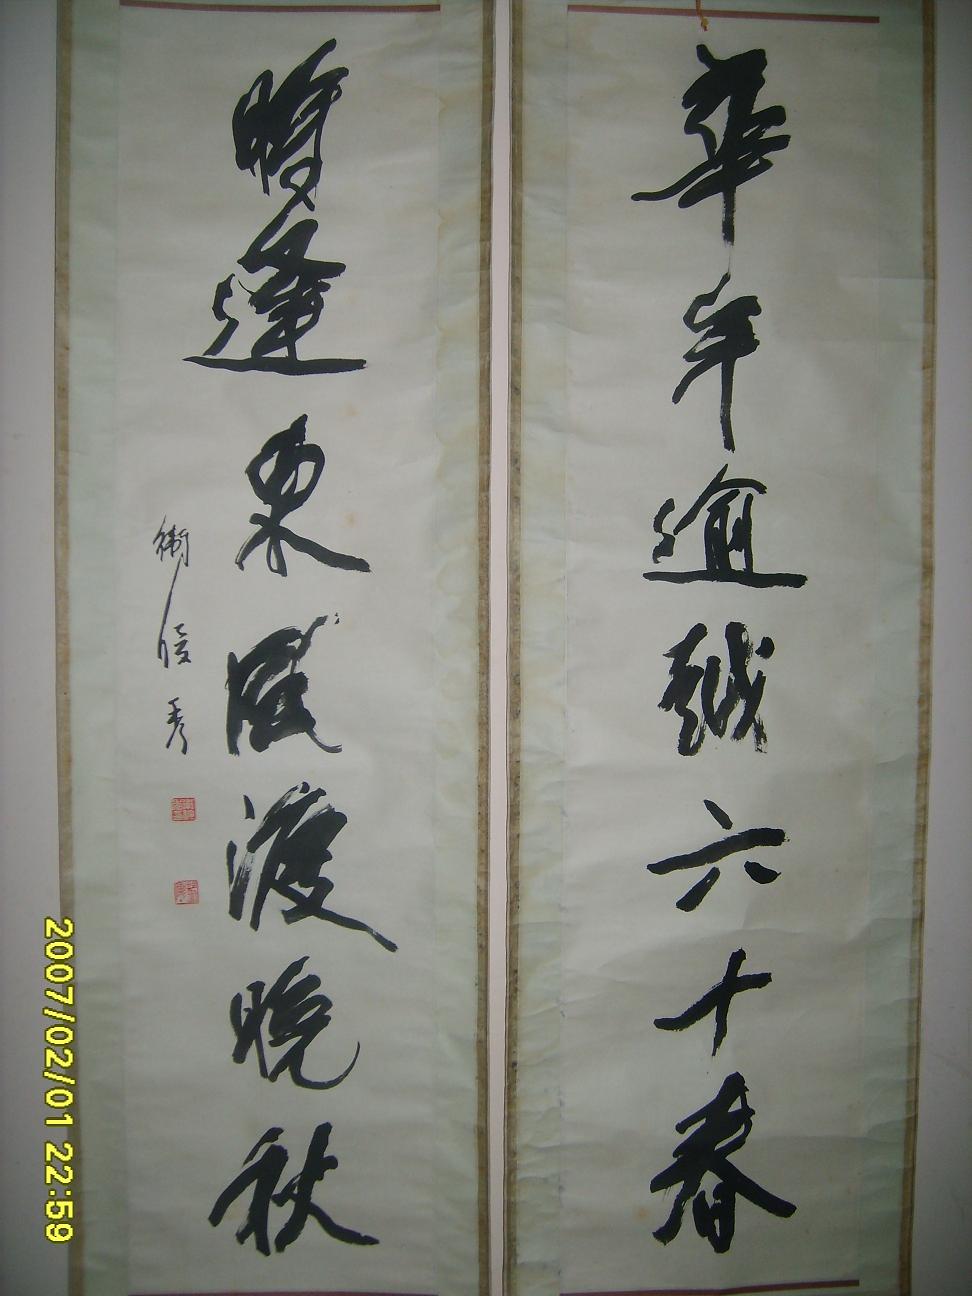 華年逾越六十春
時逢東風渡晚秋
衛俊秀
2007/02/01 22:59